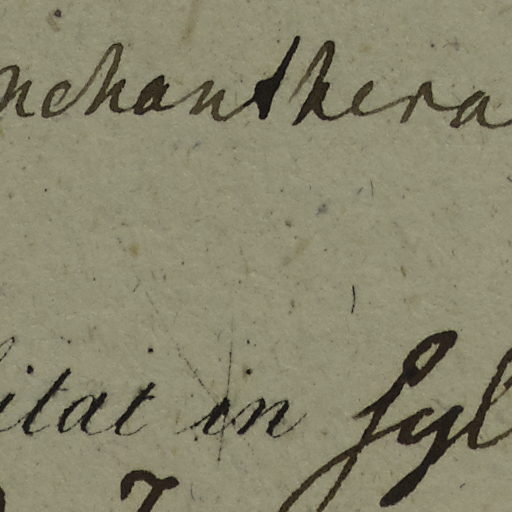 nchanthera
itat in Syl